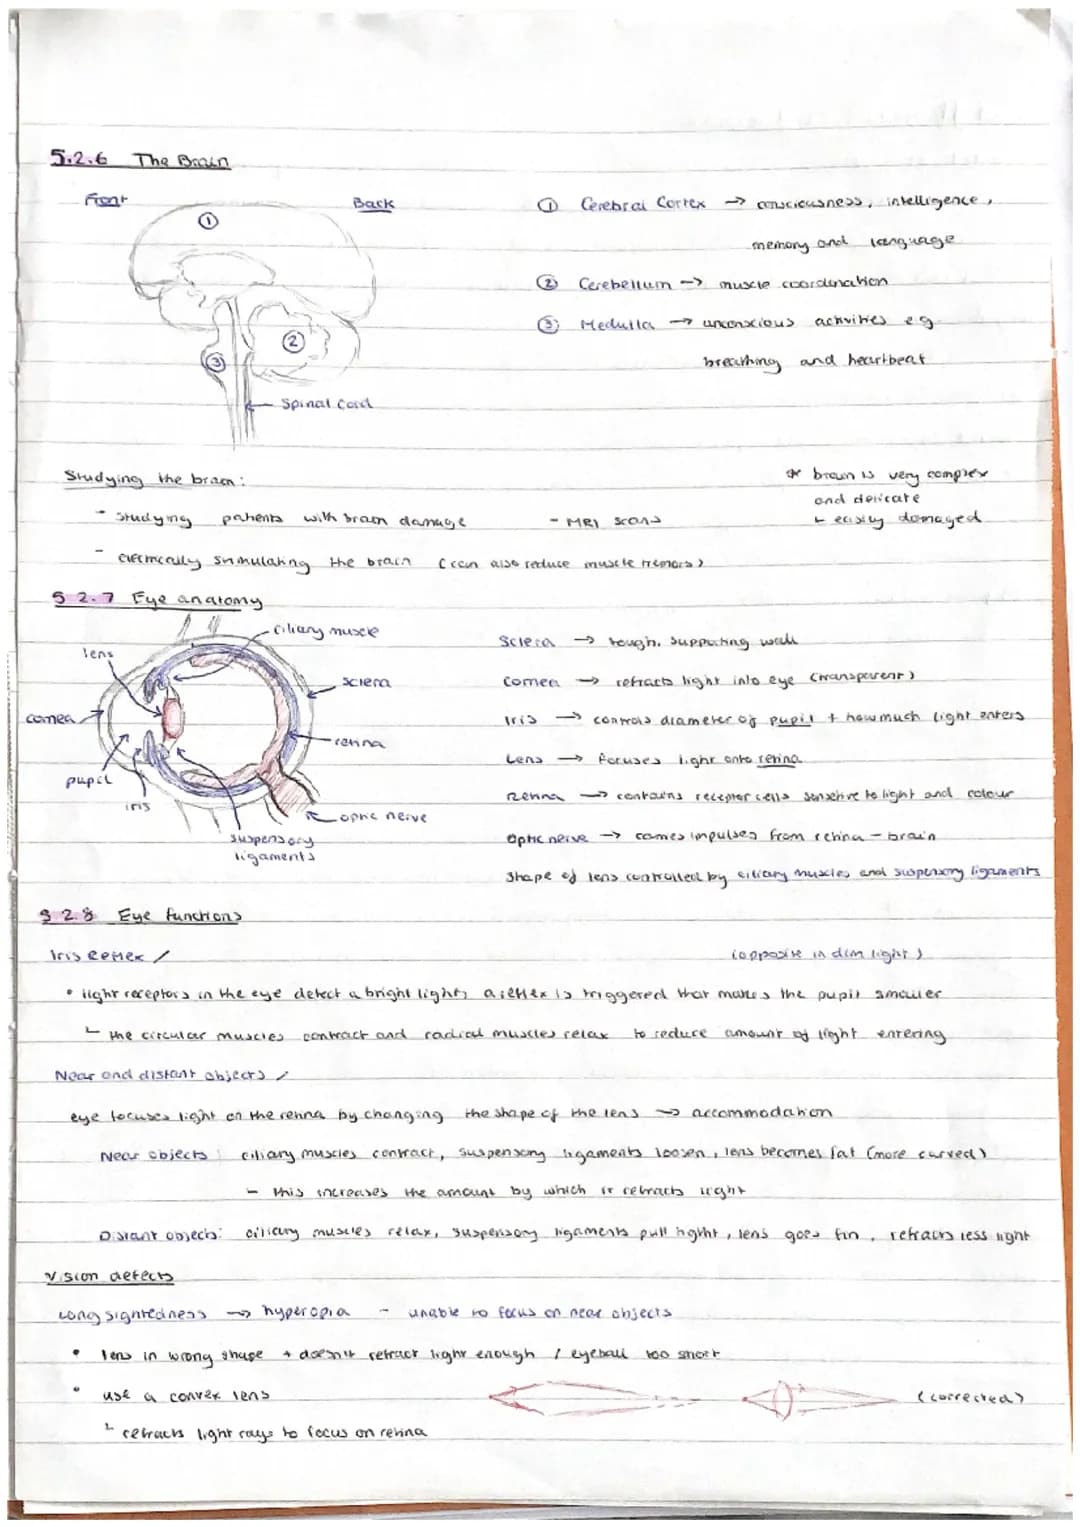 5.2.6 The Brain
Front
Back
①
②
③
Spinal Cord
① Cerebral Cortex → consciousness, intelligence,
memory and language
② Cerebellum → muscle coordination
③ Medulla → unconscious activities eg
breathing and heartbeat
Studying the brain:
- Studying patients with brain damage
- MRI scans
- electrically stimulating the brain (can also reduce muscle tremors)
* brain is very complex
and delicate
↳ easily damaged
5.2.7 Eye anatomy
ciliary muscle
lens
sclera
cornea
retina
pupil
iris
optic nerve
suspensory
ligaments
Sclera → tough, supporting wall
Cornea → refracts light into eye (transparent)
Iris → controls diameter of pupil + how much light enters
Lens → focuses light onto retina
Retina → contains receptor cells sensitive to light and colour
Optic nerve → carries impulses from retina - brain
Shape of lens controlled by ciliary muscles and suspensory ligaments
5.2.8 Eye functions
Iris Reflex /
(opposite in dim light)
• light receptors in the eye detect a bright light, a reflex is triggered that makes the pupil smaller
↳ the circular muscles contract and radial muscles relax to reduce amount of light entering
Near and distant objects /
eye focuses light on the retina by changing the shape of the lens → accommodation
Near objects: ciliary muscles contract, suspensory ligaments loosen, lens becomes fat (more curved)
- this increases the amount by which it refracts light
Distant objects: ciliary muscles relax, suspensory ligaments pull tight, lens goes fin, refracts less light
Vision defects
Long sightedness → hyperopia - unable to focus on near objects
• lens in wrong shape + doesn't refract light enough / eyeball too short
• use a convex lens
(corrected)
↳ refracts light rays to focus on retina